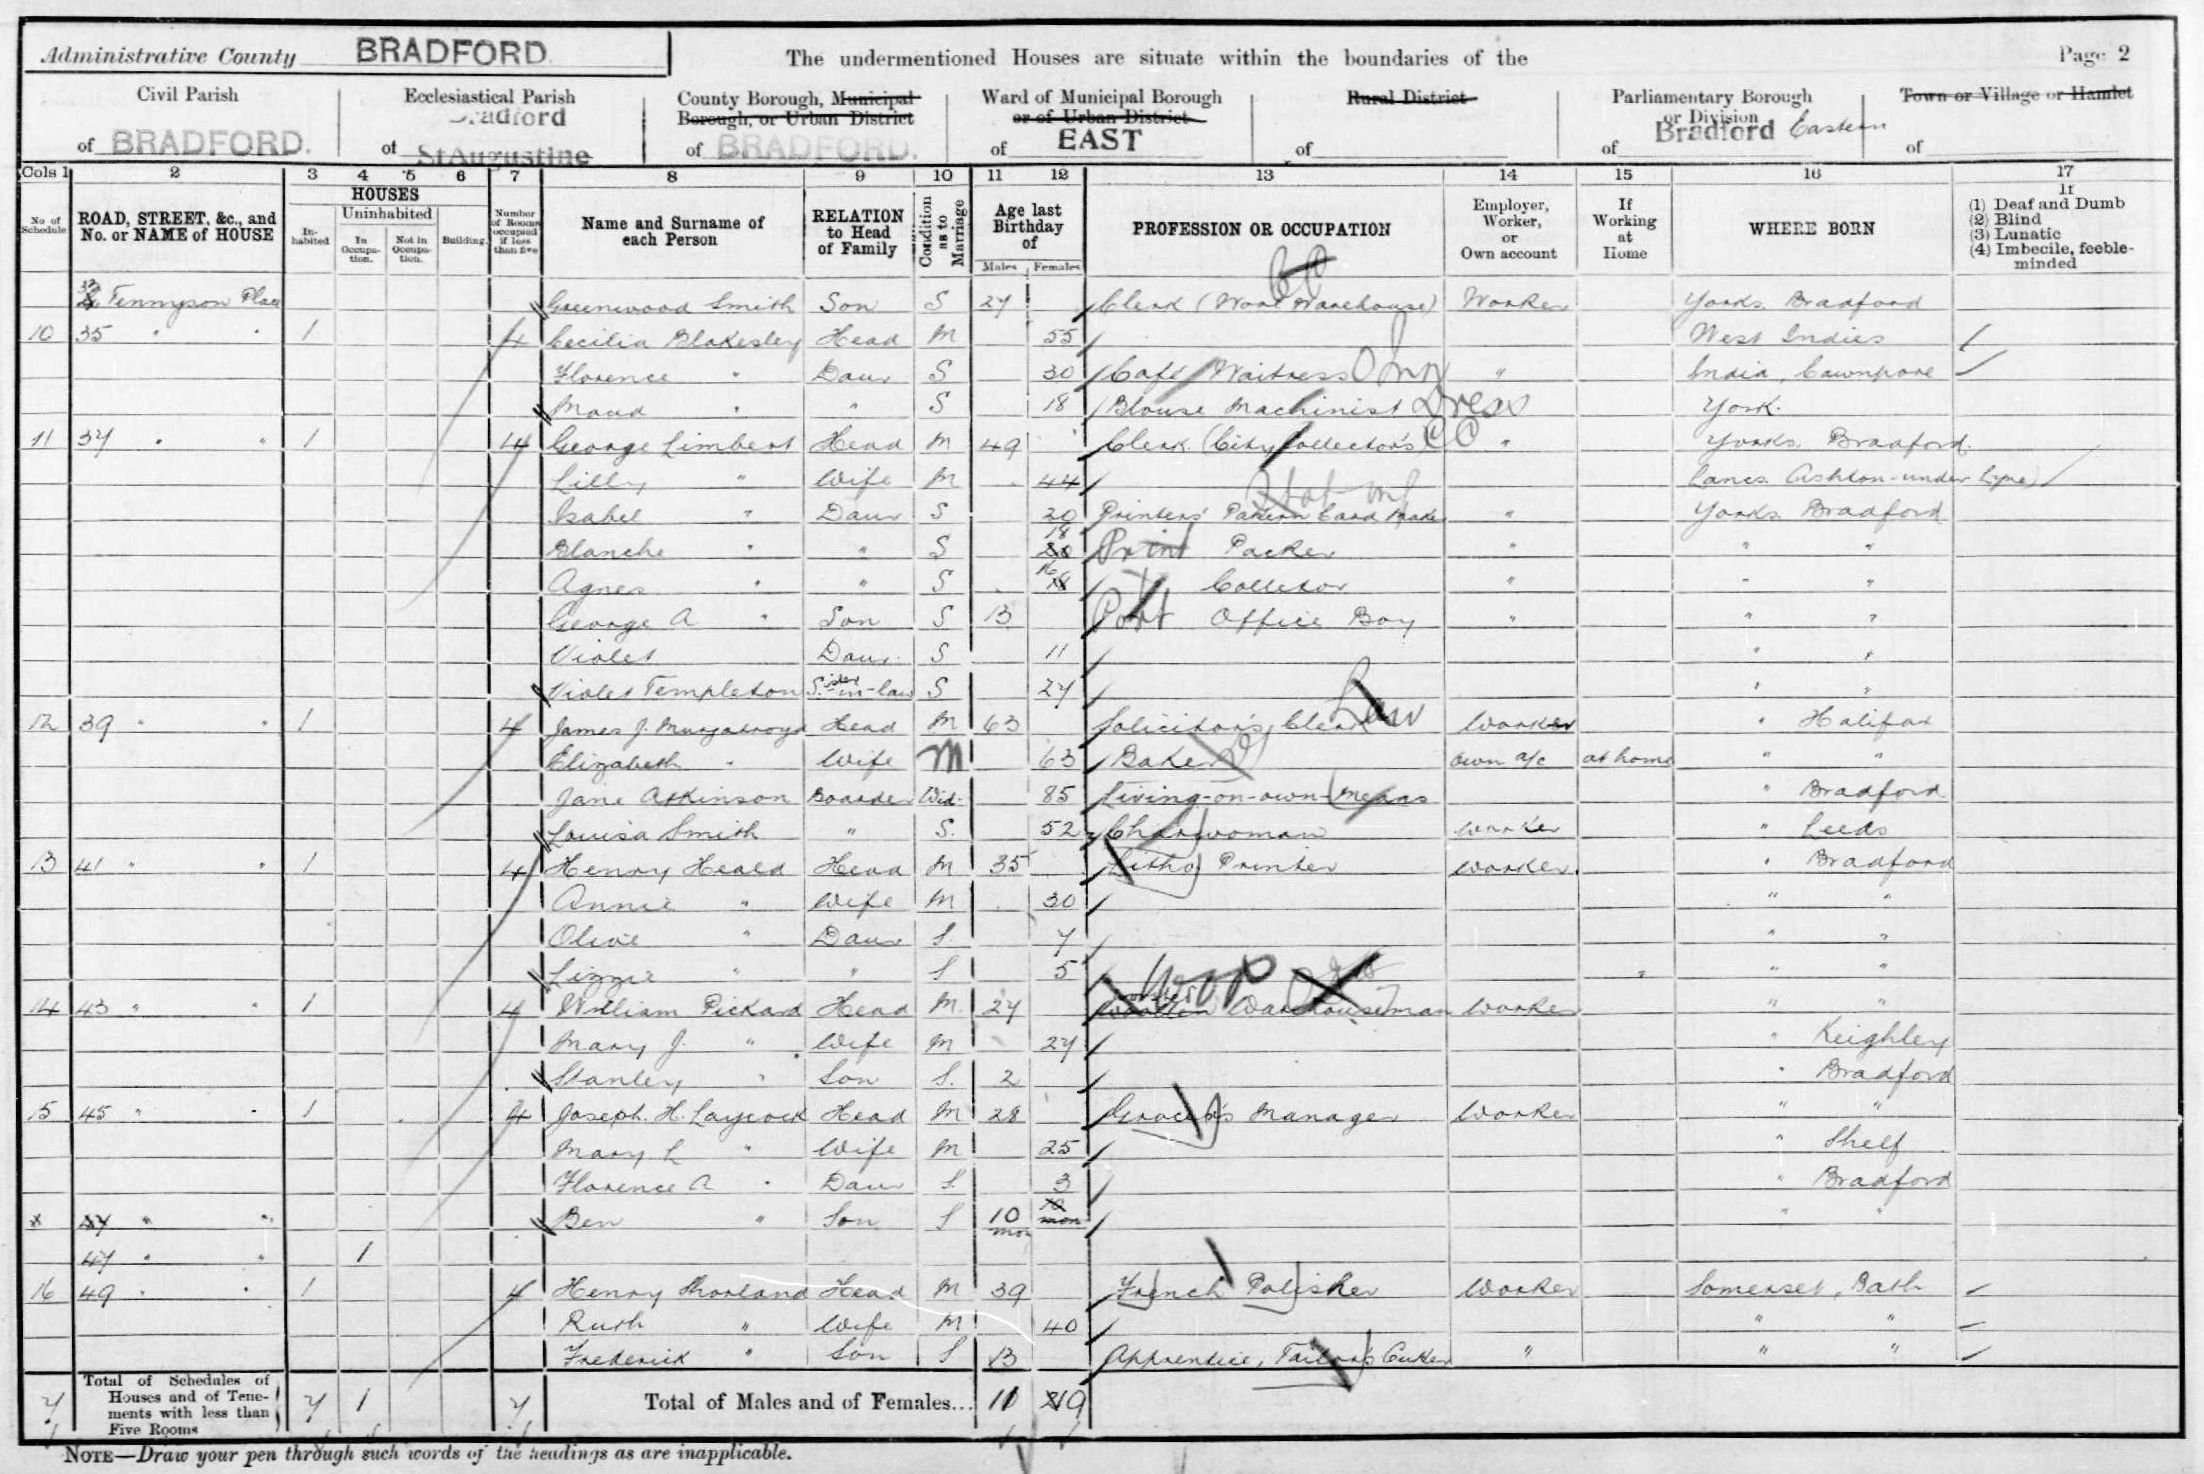 Administrative County BRADFORD. The undermentioned Houses are situate within the boundaries of the Page 2
Civil Parish of BRADFORD.
Ecclesiastical Parish of Bradford St Augustine
County Borough, Municipal Borough, or Urban District of BRADFORD.
Ward of Municipal Borough or of Urban District of EAST
Rural District of
Parliamentary Borough or Division of Bradford Eastern
Town or Village or Hamlet of
Cols 1 2 3 4 5 6 7 8 9 10 11 12 13 14 15 16 17
No of Schedule
ROAD, STREET, &c., and No. or NAME of HOUSE
HOUSES
Inhabited
Uninhabited
In Occupation.
Not in Occupation.
Building.
Number of Rooms occupied if less than five
Name and Surname of each Person
RELATION to Head of Family
Condition as to Marriage
Age last Birthday of
Males Females
PROFESSION OR OCCUPATION
Employer, Worker, or Own account
If Working at Home
WHERE BORN
If
(1) Deaf and Dumb
(2) Blind
(3) Lunatic
(4) Imbecile, feeble-minded
33 Tennyson Place Greenwood Smith Son S 27 Clerk (Wool Warehouse) CC Worker Yorks. Bradford
10 35 " " 1 4 Cecilia Blakesley Head M 55 West Indies
Florence " Daur S 30 Café Waitress " India, Cawnpore
Maud " " S 18 Blouse Machinist Dress York.
11 37 " " 1 4 George Limbert Head M 49 Clerk (City Collector's) CC " Yorks. Bradford.
Lilly " Wife M 44 Lancs. Ashton-under Lyne
Isabel " Daur S 20 Printers' Pattern Card Maker " Yorks. Bradford
Blanche " " S 18 20 Print Packer " " "
Agnes " " S 16 18 Collator " " "
George A " Son S 13 Post Office Boy " " "
Violet Daur. S 11 " "
Violet Templeton Sister-in-law S 27 " "
12 39 " " 1 4 James J. Murgatroyd Head M 63 Solicitor's Clerk Law Worker " Halifax
Elizabeth " Wife M 63 Baker own a/c at home " "
Jane Atkinson Boarder Wid. 85 Living-on-own-Means " Bradford
Louisa Smith " S. 52 Charwoman worker " Leeds
13 41 " " 1 4 Henry Heald Head M 35 Litho Printer worker. " Bradford
Annie " Wife M 30 " "
Olive " Daur S. 7 " "
Lizzie " " S 5 " " "
14 43 " " 1 4 William Pickard Head M. 27 Woollen Warehouseman Worker " "
Mary J. " Wife M 27 " Keighley
Stanley " Son S. 2 " Bradford
15 45 " " 1 4 Joseph. H. Laycock Head M 28 Grocer's Manager Worker " "
Mary L " Wife M 25 " Shelf
Florence A " Daur S. 3 " Bradford
x 47 " " Ben " Son S 10 mon 10 mon " "
47 " " 1
16 49 " " 1 4 Henry Shorland Head M 39 French Polisher Worker Somerset, Bath
Ruth " Wife M 40 " "
Frederick " Son S 13 Apprentice, Tailor's Cutter " " "
7 Total of Schedules of Houses and of Tenements with less than Five Rooms 7 1 7 Total of Males and of Females... 11 19
NOTE—Draw your pen through such words of the headings as are inapplicable.